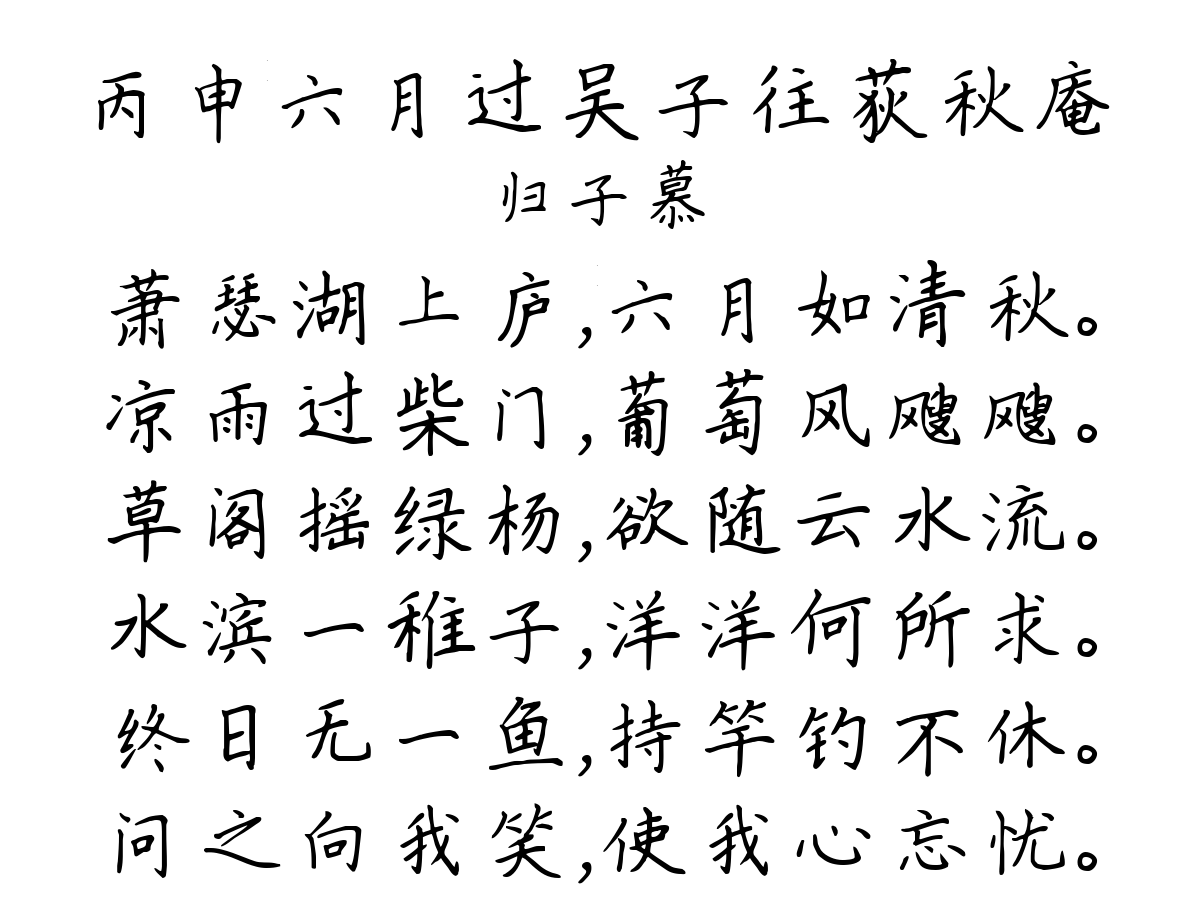 丙申六月过吴子往荻秋庵
归子慕
萧瑟湖上庐,六月如清秋。
凉雨过柴门,葡萄风飕飕。
草阁摇绿杨,欲随云水流。
水滨一稚子,洋洋何所求。
终日无一鱼,持竿钓不休。
问之向我笑,使我心忘忧。